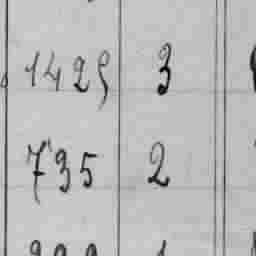 1429 3
735 2